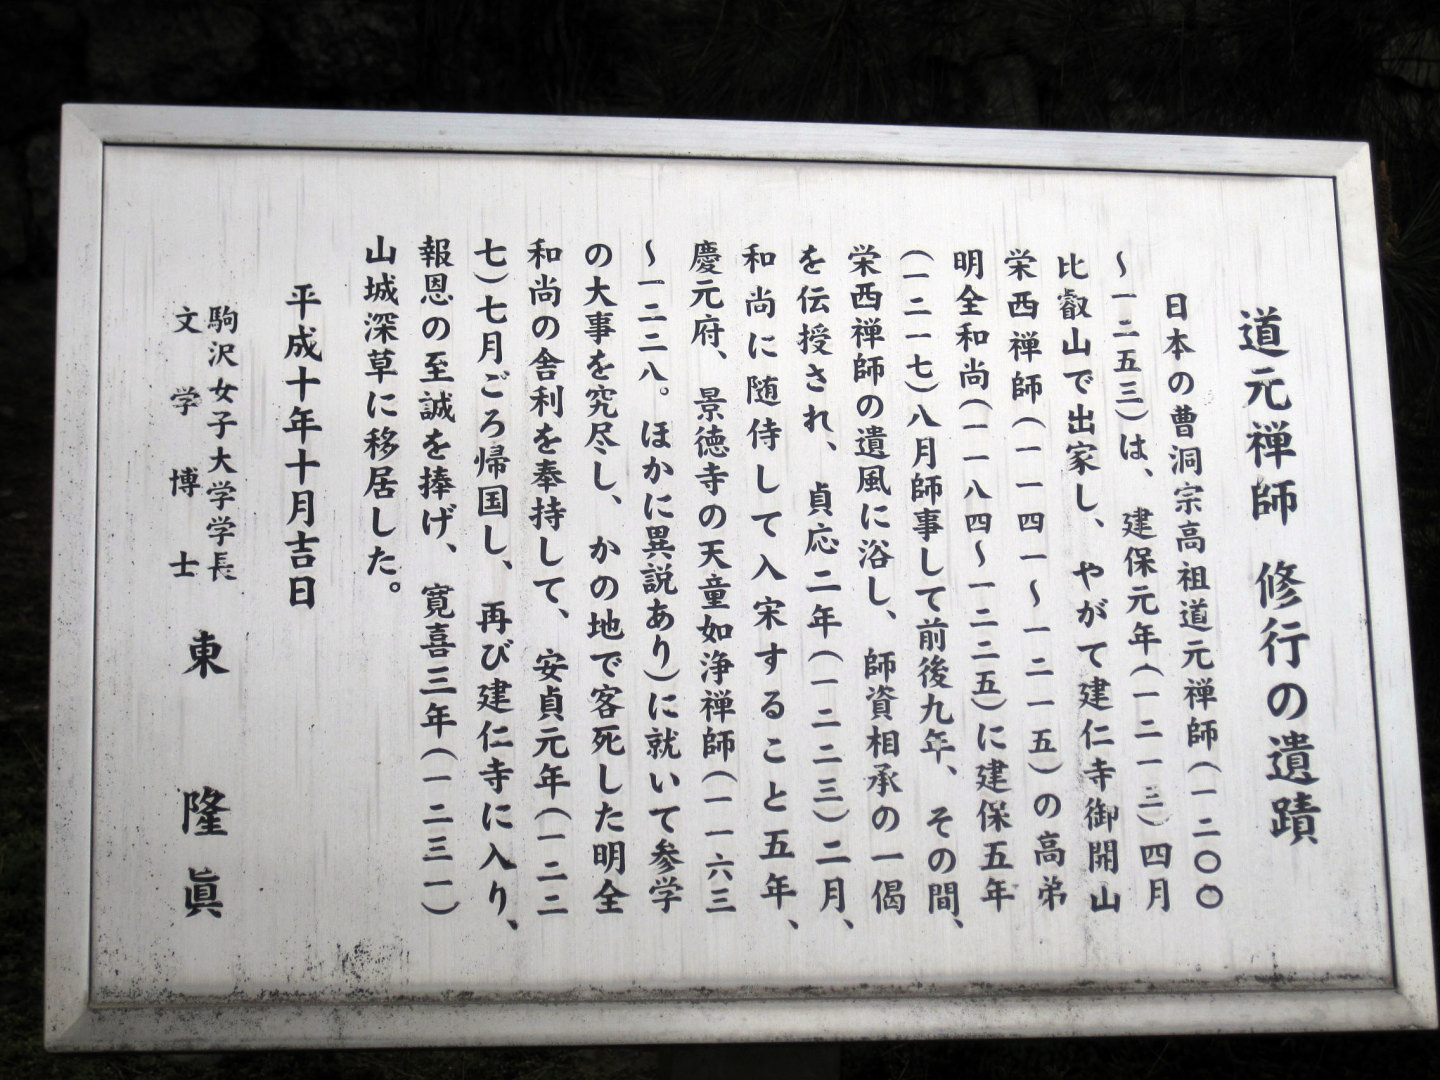 道元禅師 修行の遺蹟
日本の曹洞宗高祖道元禅師(一二〇〇
〜一二五三)は、建保元年(一二一三)四月
比叡山で出家し、やがて建仁寺御開山
栄西禅師(一一四一〜一二一五)の高弟
明全和尚(一一八四〜一二二五)に建保五年
(一二一七)八月師事して前後九年、その間、
栄西禅師の遺風に浴し、師資相承の一偈
を伝授され、貞応二年(一二二三)二月、
和尚に随侍して入宋すること五年、
慶元府、景徳寺の天童如浄禅師(一一六三
〜一二二八。ほかに異説あり)に就いて参学
の大事を究尽し、かの地で客死した明全
和尚の舎利を奉持して、安貞元年(一二二
七)七月ごろ帰国し、再び建仁寺に入り、
報恩の至誠を捧げ、寛喜三年(一二三一)
山城深草に移居した。
平成十年十月吉日
駒沢女子大学学長
文学博士 東 隆眞